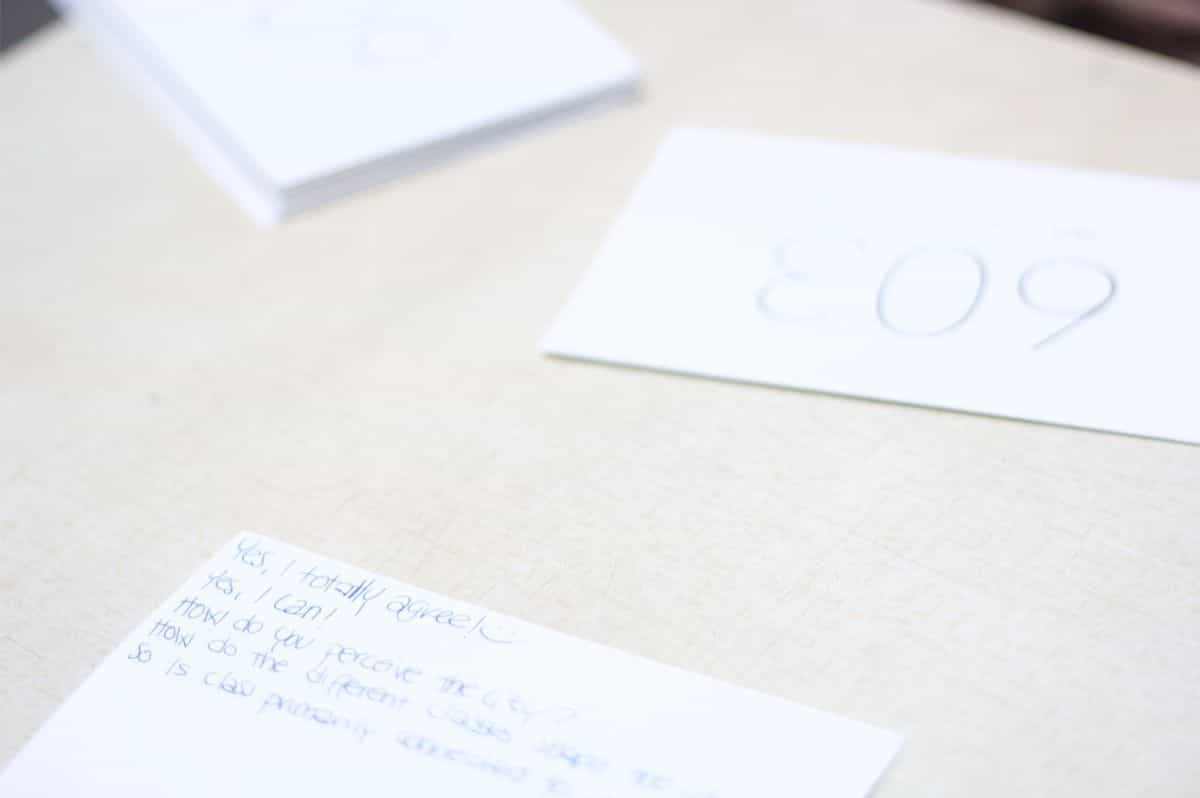 603
Yes, I totally agree! :)
Yes, I can!
How do you perceive the city?
How do the different classes shape the
So is class primarily connected to